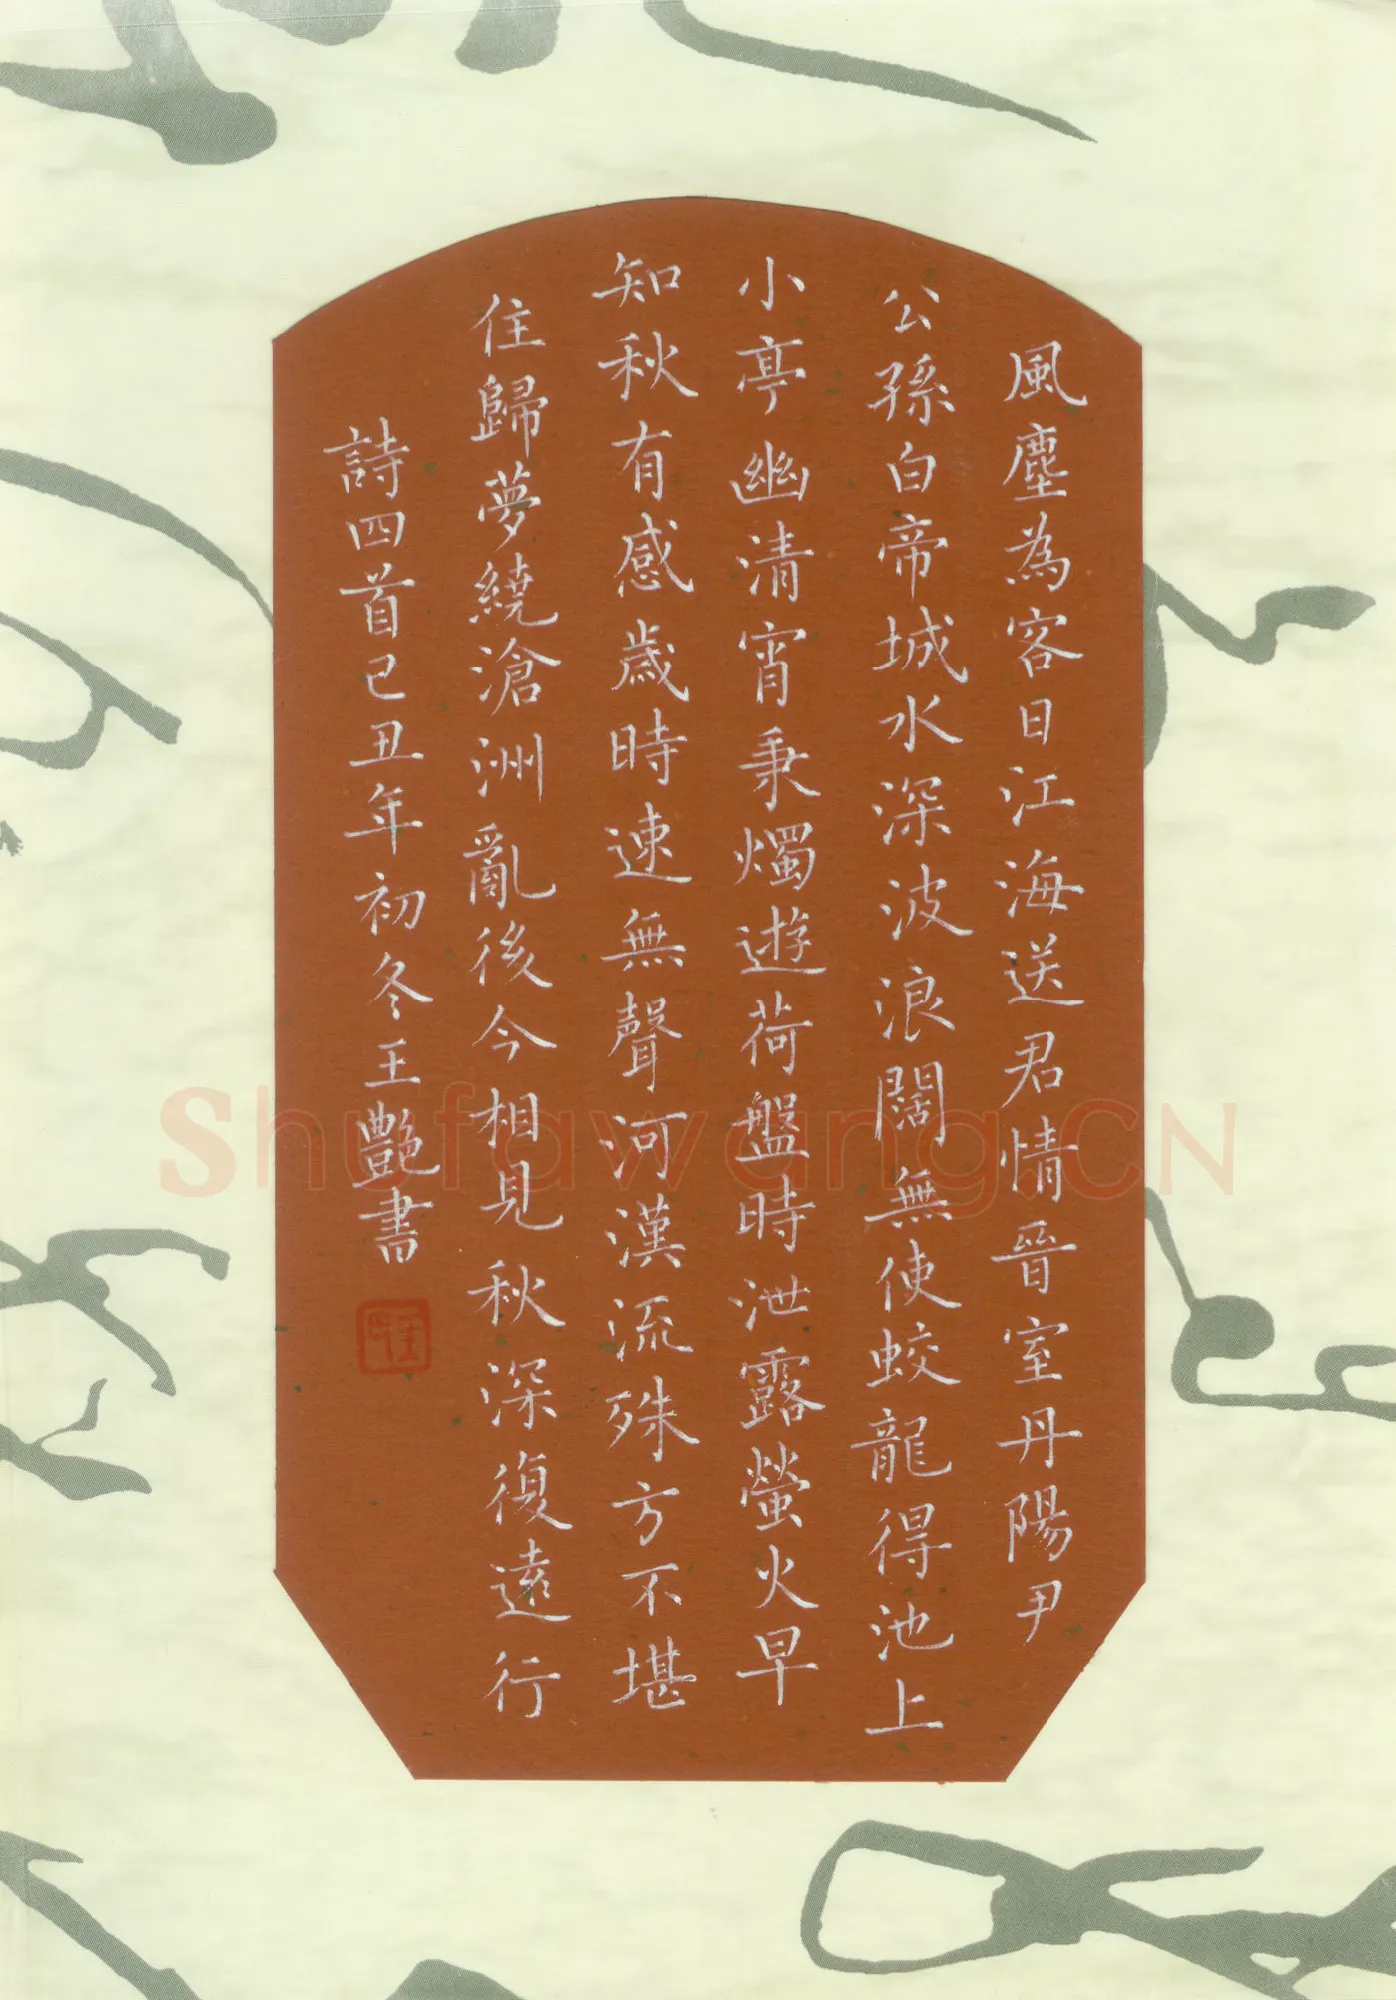 風塵為客日江海送君情晉室丹陽尹
公孫白帝城水深波浪闊無使蛟龍得池上
小亭幽清宵秉燭遊荷盤時泄露螢火早
知秋有感歲時速無聲河漢流殊方不堪
住歸夢繞滄洲亂後今相見秋深復遠行
詩四首己丑年初冬王艷書
Shufawang.CN